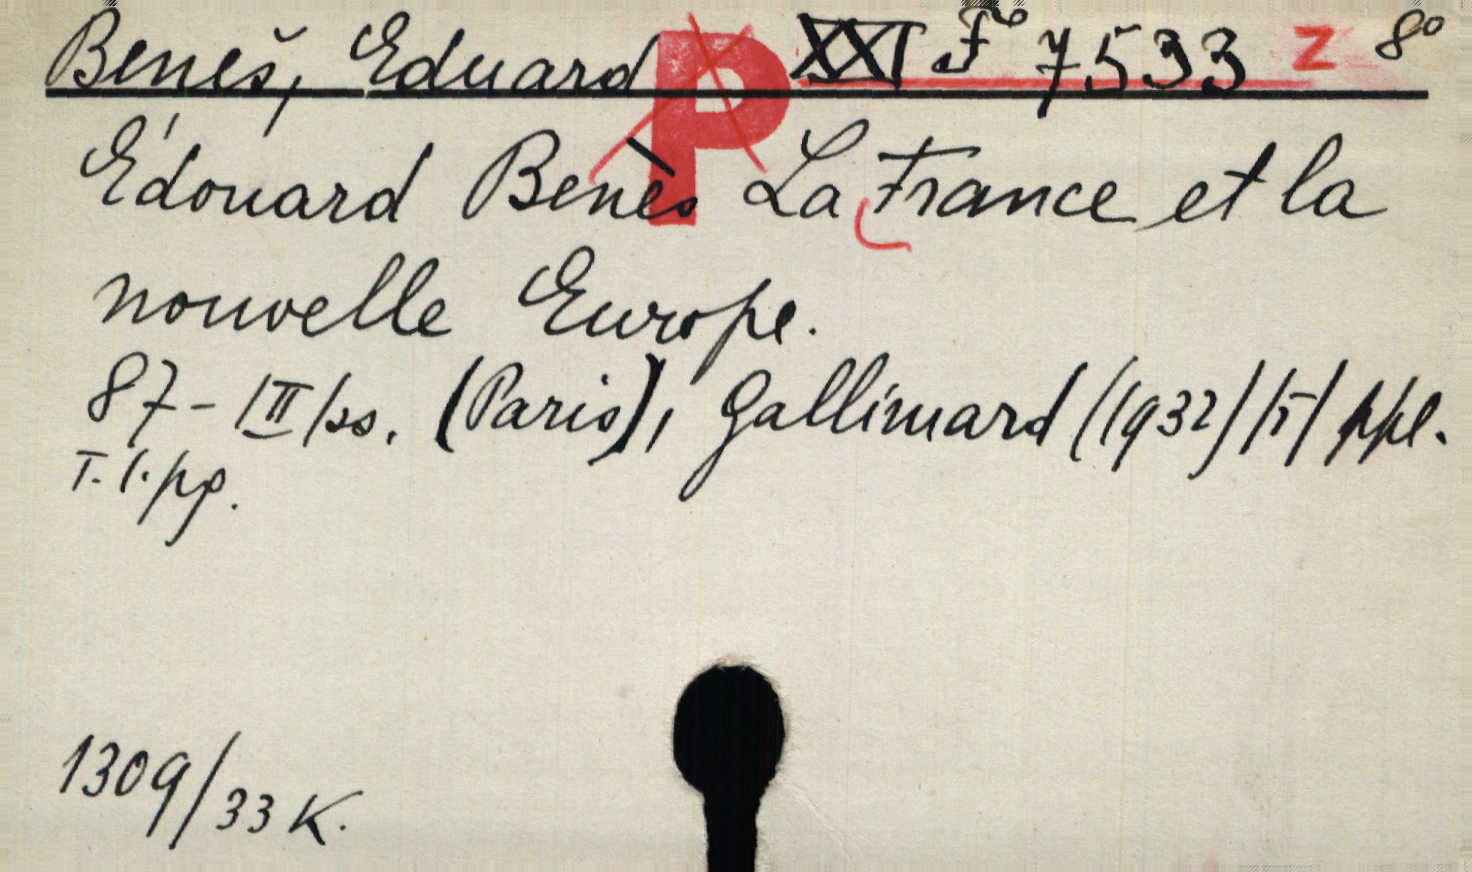 Beneš, Eduard P XXI F 7533 Z 8°
Édouard Benès La France et la
nouvelle Europe.
87-/III/ss. (Paris), Gallimard (1932) /5/ ppl.
T. l. pp.
1309/33 K.